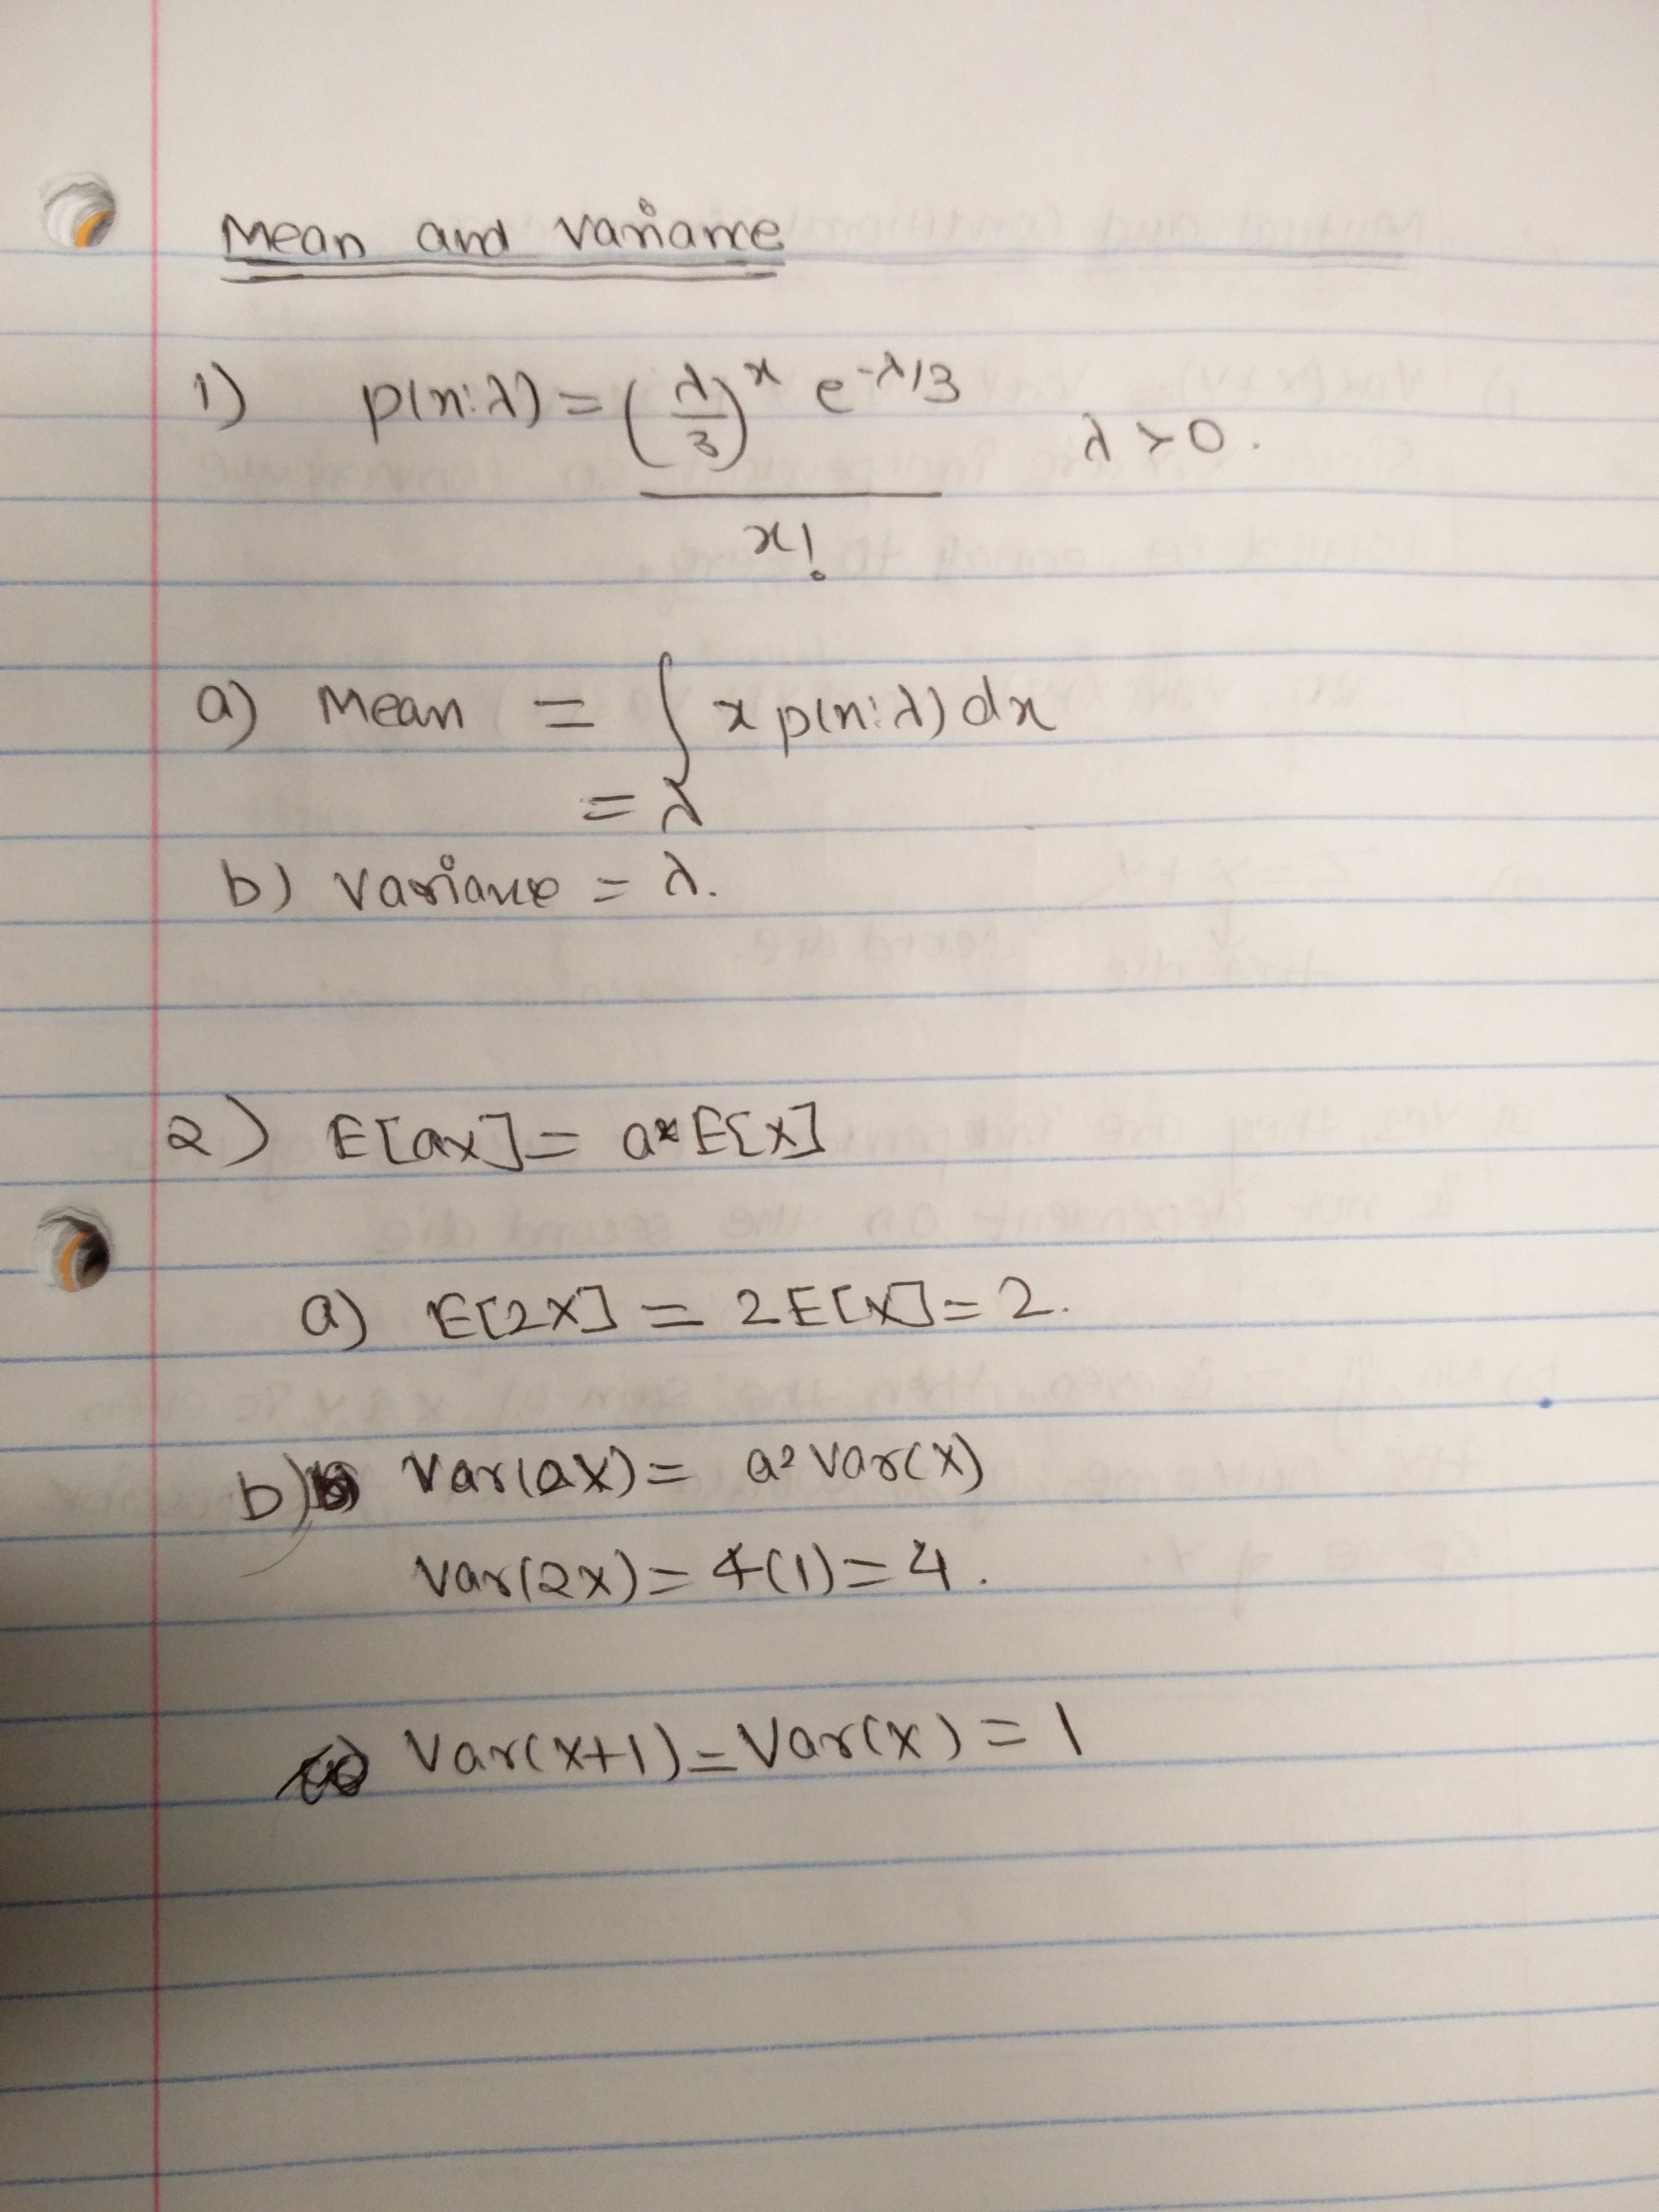 Mean and Variance
1) p(n:λ) = (λ/3)^x e^-λ/3 / x! λ > 0.
a) Mean = ∫ x p(n:λ) dx
= λ
b) Variance = λ.
2) E[ax] = a* E[x]
a) E[2X] = 2E[X] = 2.
b) Var(aX) = a² Var(X)
Var(2x) = 4(1) = 4.
Var(x+1) = Var(x) = 1